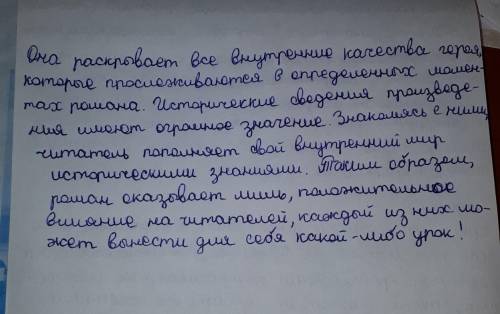 Она раскрывает все внутренние качества героя,
которые прослеживаются в определенных момен-
тах романа. Исторические сведения произведе-
ния имеют огромное значение. Знакомясь с ними,
читатель пополняет свой внутренний мир
историческими знаниями. Таким образом,
роман оказывает лишь, положительное
влияние на читателей, каждый из них мо-
жет вынести для себя какой-либо урок!